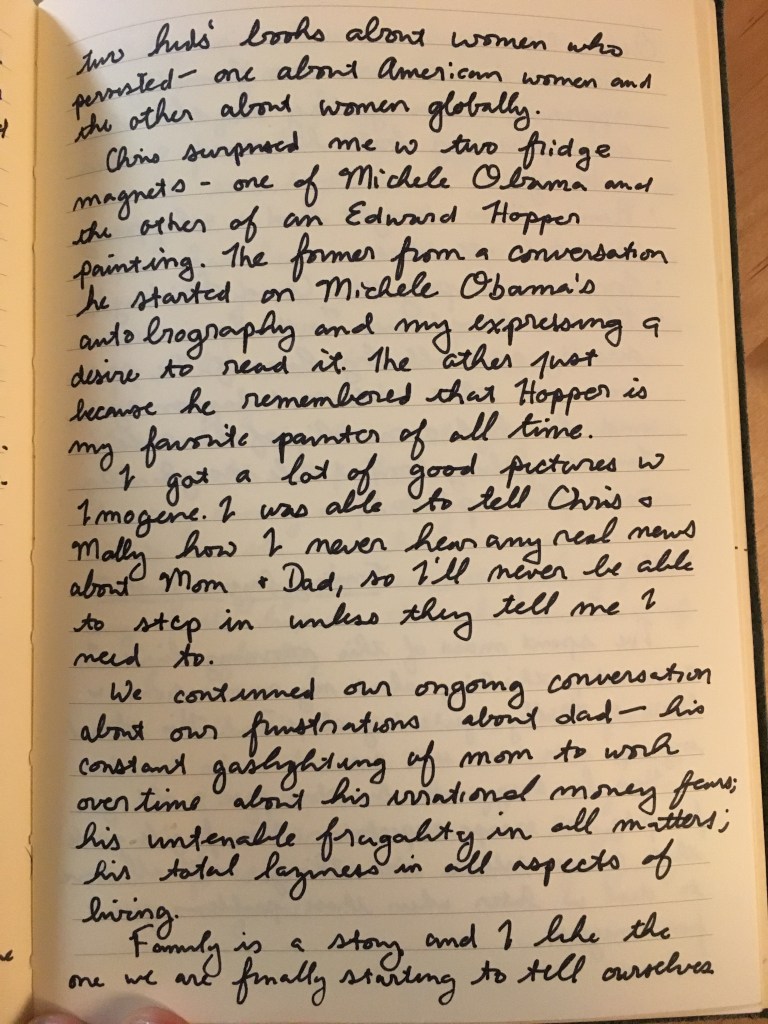 two kids' books about women who
persisted — one about American women and
the other about women globally.
Chris surprised me w two fridge
magnets - one of Michele Obama and
the other of an Edward Hopper
painting. The former from a conversation
he started on Michele Obama's
autobiography and my expressing a
desire to read it. The other just
because he remembered that Hopper is
my favorite painter of all time.
I got a lot of good pictures w
Imogene. I was able to tell Chris &
Molly how I never hear any real news
about Mom & Dad, so I'll never be able
to step in unless they tell me I
need to.
We continued our ongoing conversation
about our frustrations about dad — his
constant gaslighting of mom to work
overtime about his irrational money fears;
his untenable frugality in all matters;
his total laziness in all aspects of
living.
Family is a story and I like the
one we are finally starting to tell ourselves